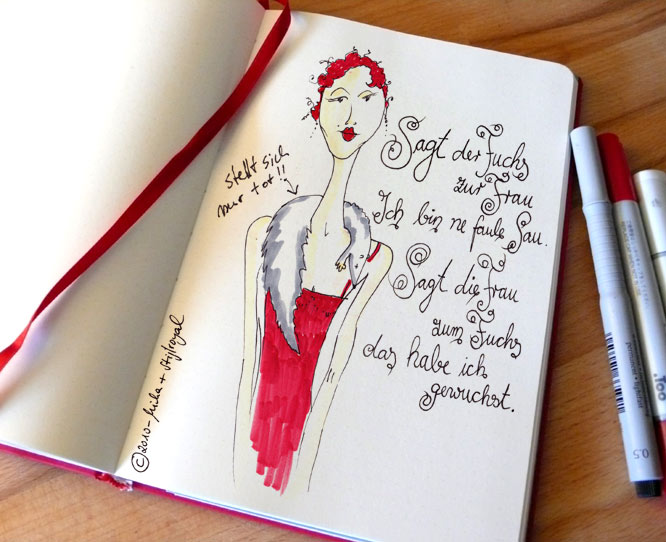 Sagt der Fuchs
zur Frau
Ich bin ne faule Sau.
Sagt die Frau
zum Fuchs
das habe ich
gewuchst.
stellt sich
nur tot!!
©2010-
0.5